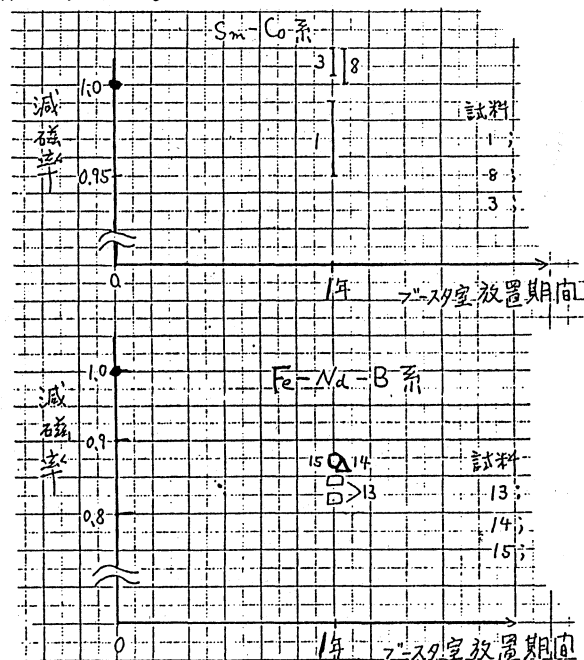 Sm-Co系
3 8
1.0
減磁率
試料
1
1;
0.95
8;
3
0
1年
ブースタ室放置期間
1.0
Fe-Nd-B系
減磁率
0.9
15 14
試料
>13
13;
0.8
14;
15;
0
1年
ブースタ室放置期間